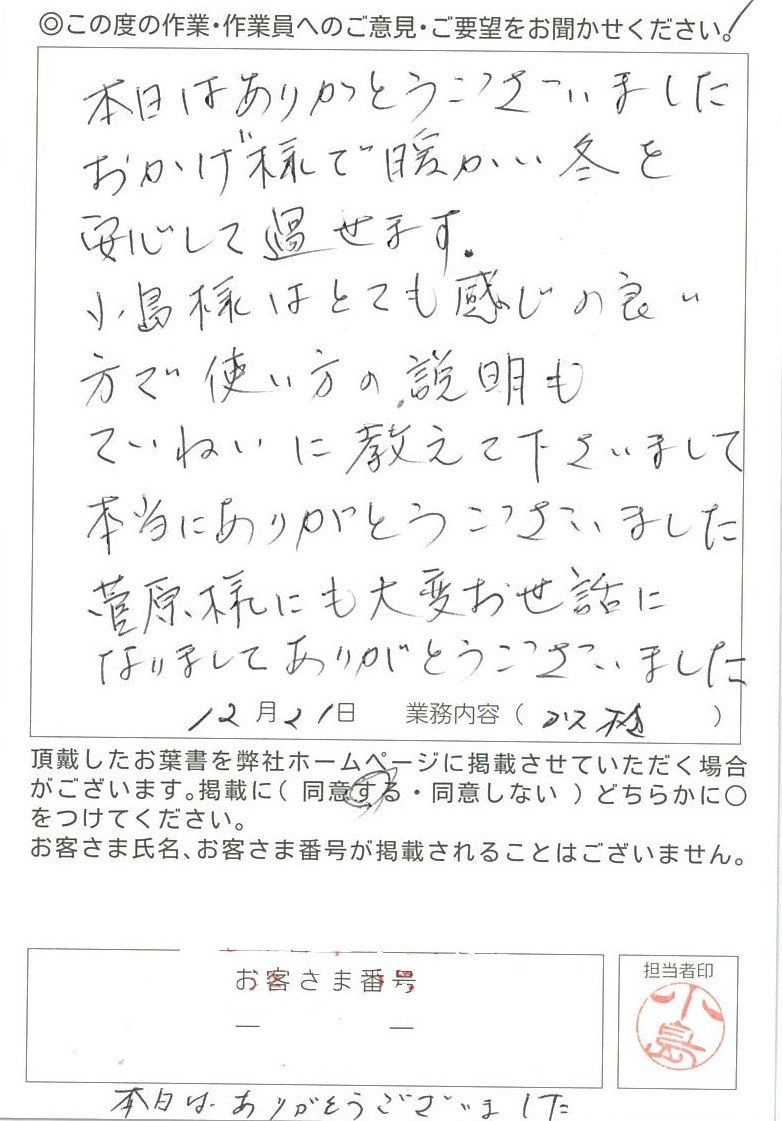 ◎この度の作業・作業員へのご意見・ご要望をお聞かせください。
本日はありがとうございました
おかげ様で暖かい冬を
安心して過せます.
小島様はとても感じの良い
方で使い方の説明も
ていねいに教えて下さいまして
本当にありがとうございました
菅原様にも大変お世話に
なりましてありがとうございました
12月21日 業務内容（ ）
頂戴したお葉書を弊社ホームページに掲載させていただく場合
がございます。掲載に（ 同意する・同意しない ）どちらかに〇
をつけてください。
お客さま氏名、お客さま番号が掲載されることはございません。
お客さま番号
— —
担当者印
小島
本日は ありがとうございました